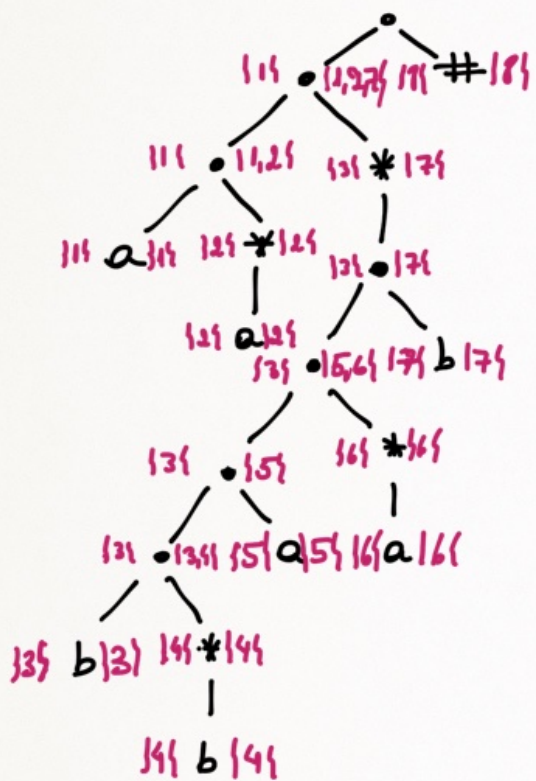 •
{1} • {1,2,7} {8} # {8}
{1} • {1,2} {3} * {7}
{1} a {1} {2} * {2} {3} • {7}
{2} a {2}
{3} • {5,6} {7} b {7}
{3} • {5} {6} * {6}
{3} • {3,4} {5} a {5} {6} a {6}
{3} b {3} {4} * {4}
{4} b {4}